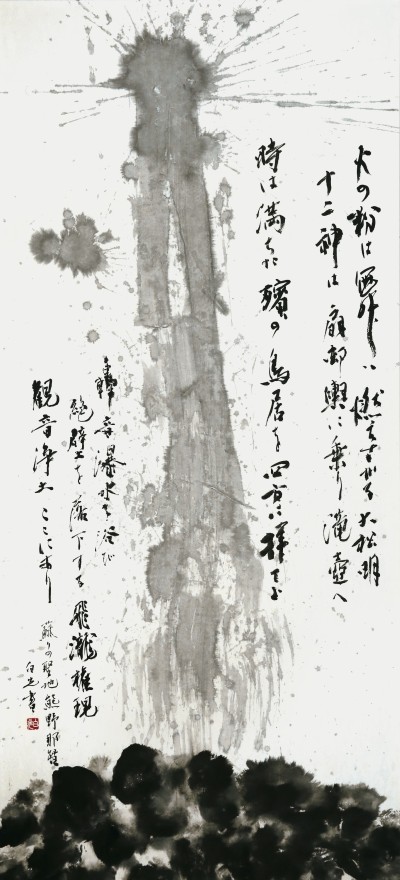 火の粉は四方に燃えさかる大松明
十二神は扇御輿に乗り滝壺へ
時は満ちた 殯の鳥居を四方に拝せよ
轟音瀑水を浴び
絶壁を落下する飛瀧権現
観音浄土ここにあり
蘇りの聖地熊野那智